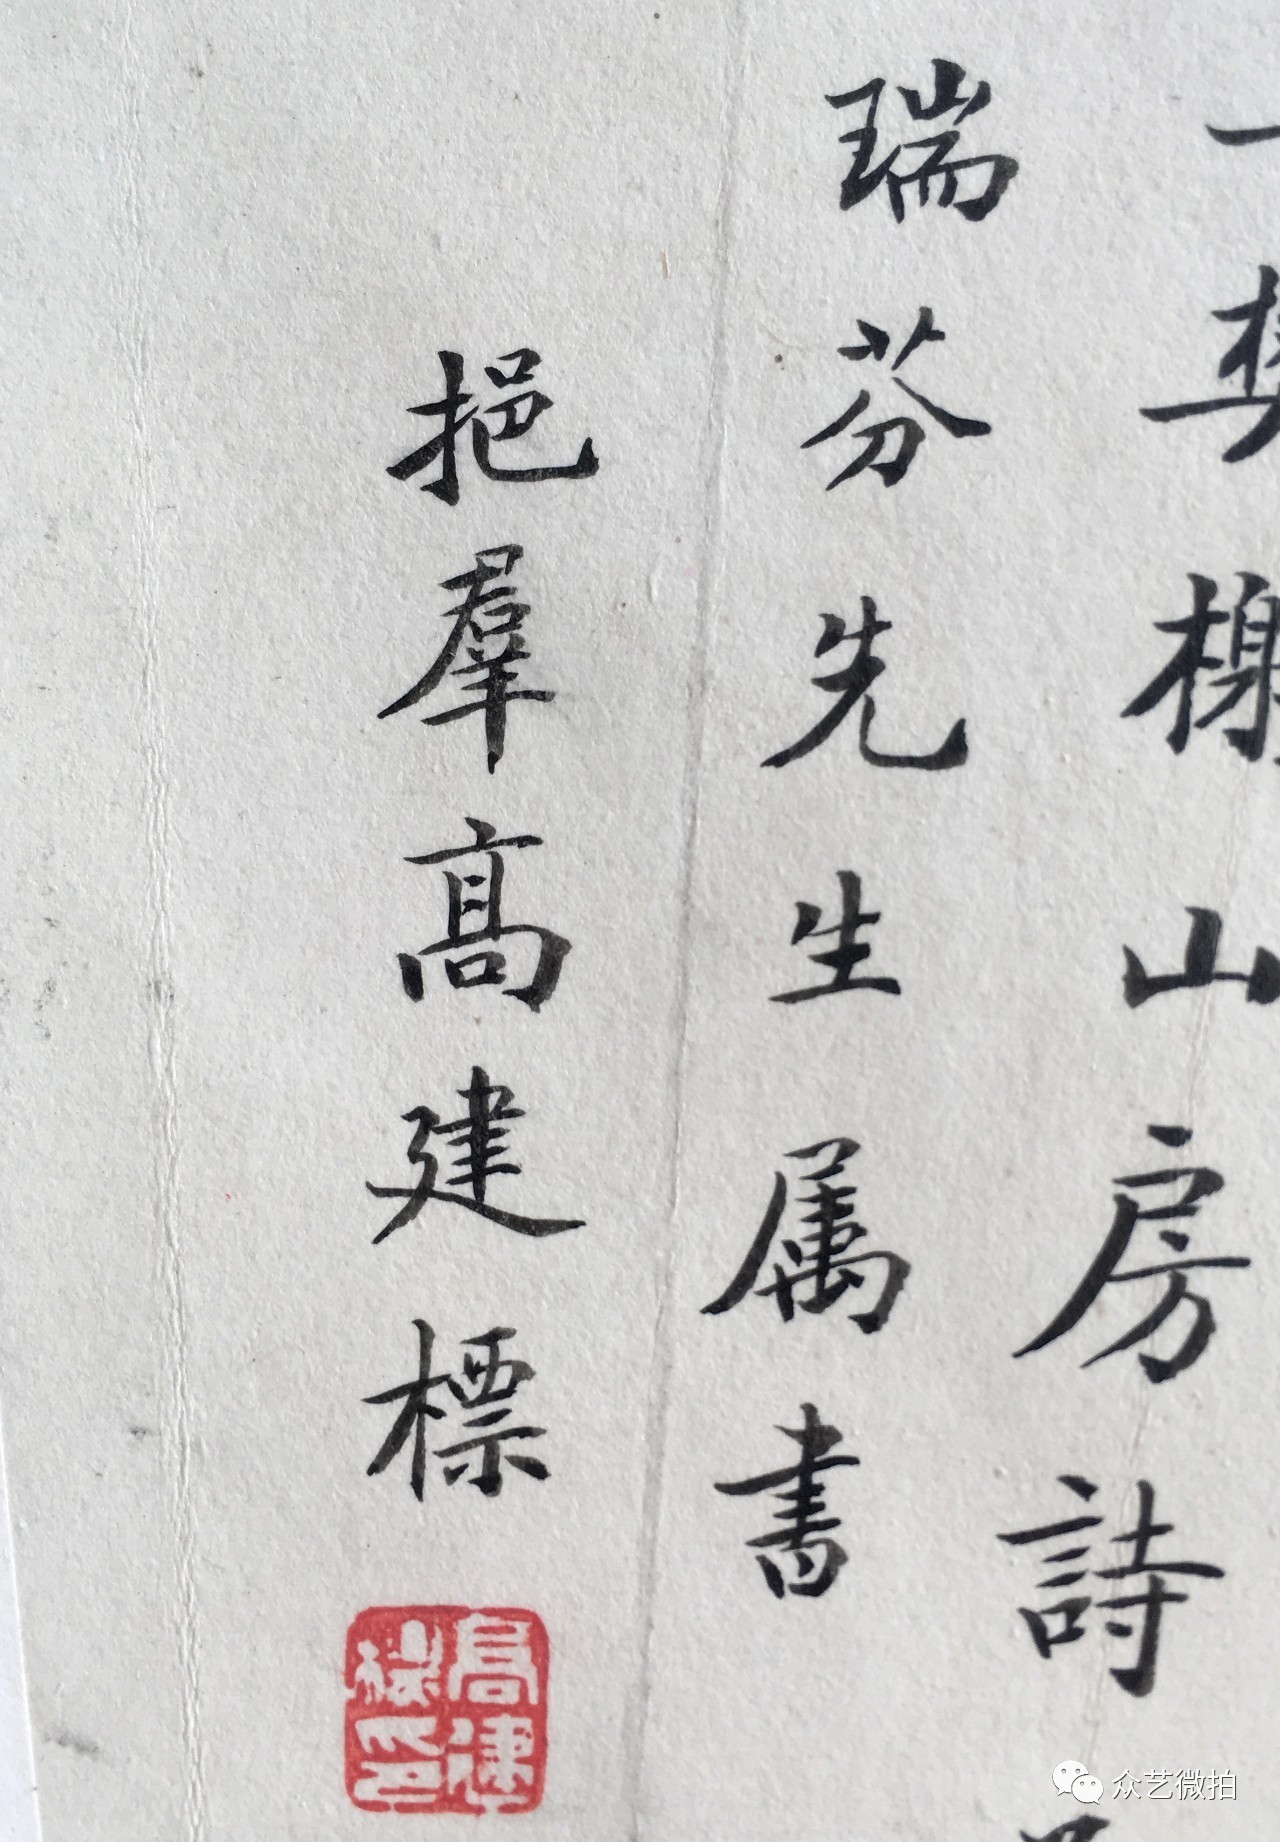 樹山房詩
瑞芬先生属書
挹羣高建標
高建標印
众艺微拍